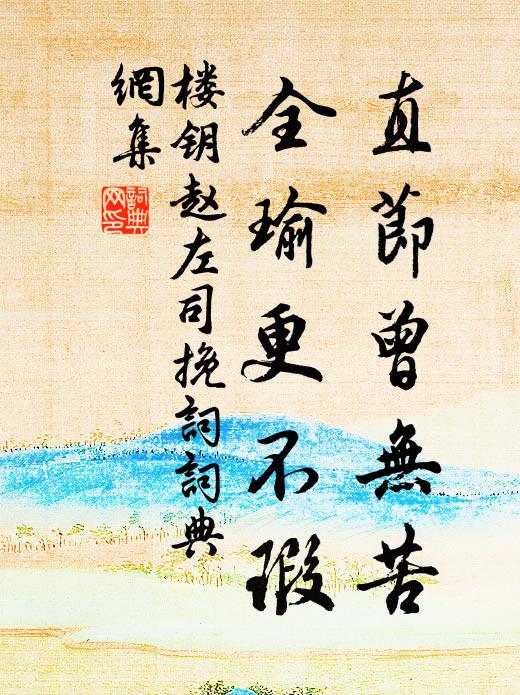 直節曾無苦
全瑜更不瑕
楼钥赵左司挽詞詞典
網集
詞典
网印